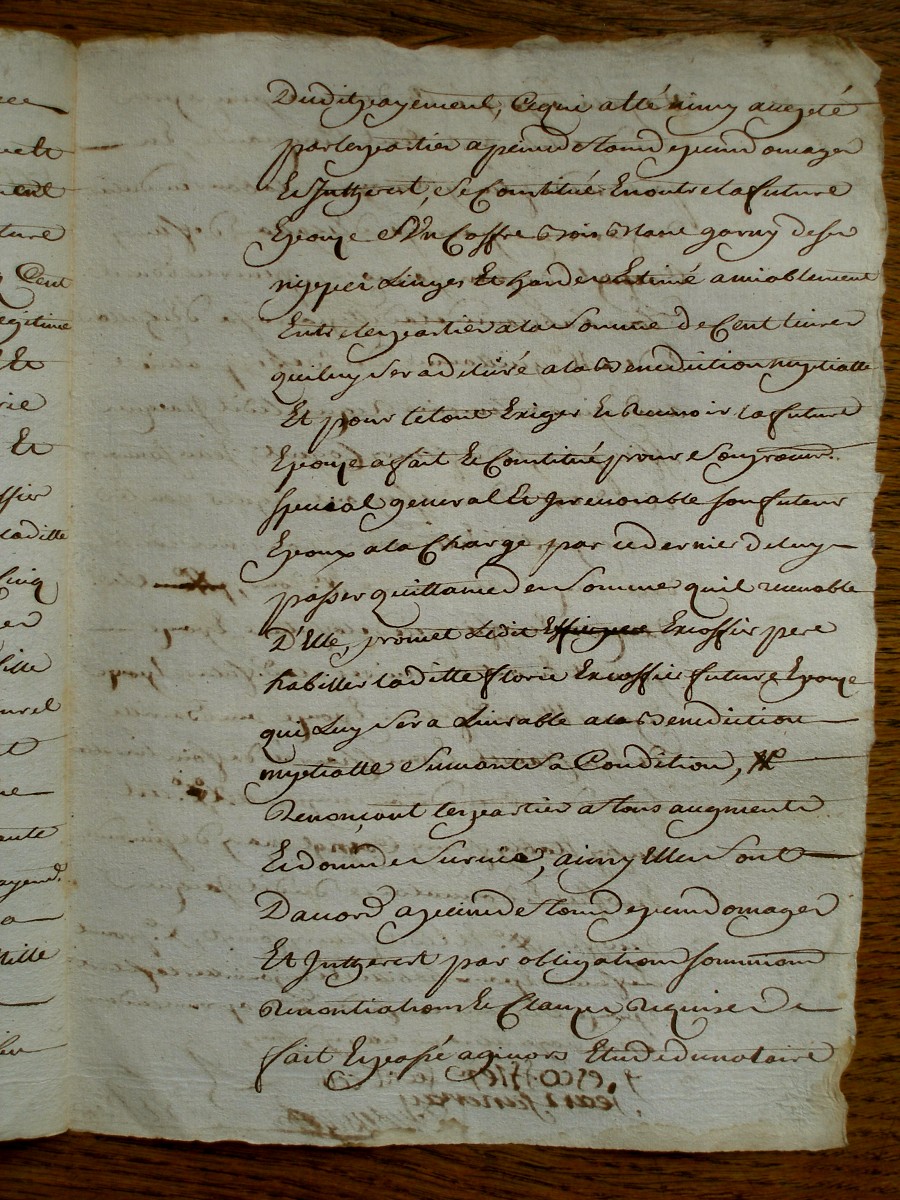 Dudit payement, Ce qui a été ainsy accepté
par les parties a peine de tous depens domages
Et Jntherest, Se Constitue En outre la future
Epouse Un Coffre bois blanc garny de ses
nipes Linges Et hardes Estimé amiablement
Entre les parties a la Somme de Cent livres
qui luy Sera delivré a la benediction nuptialle
Et pour le tout Exiger Et Recevoir la future
Epouse a fait Et Constitué pour Son procur.
special general Et Jrrevocable son futeur
Epoux a la Charge par ce dernier de luy
passer quittance des Somme quil recevra
D'Elle, promet Ledit Excoffier pere
habiller laditte florie Excoffier future Epouse
qui Luy Sera Livrable a la benediction
nuptialle Suivant Sa Condition,
Renonçant les parties a tous augments
Et donnes de Survie, ainsy Elles Sont
Dacord a peine de tous depens domages
Et Jntherest par obligations soumissions
Renontiations Et Clauses Requises de
fait Et passé a Etude du notaire
ee
ment
ture
Cent
egitime
Et
rie
Et
ffier
laditte
Cinq
ille
rel
ne
ante
a
mille